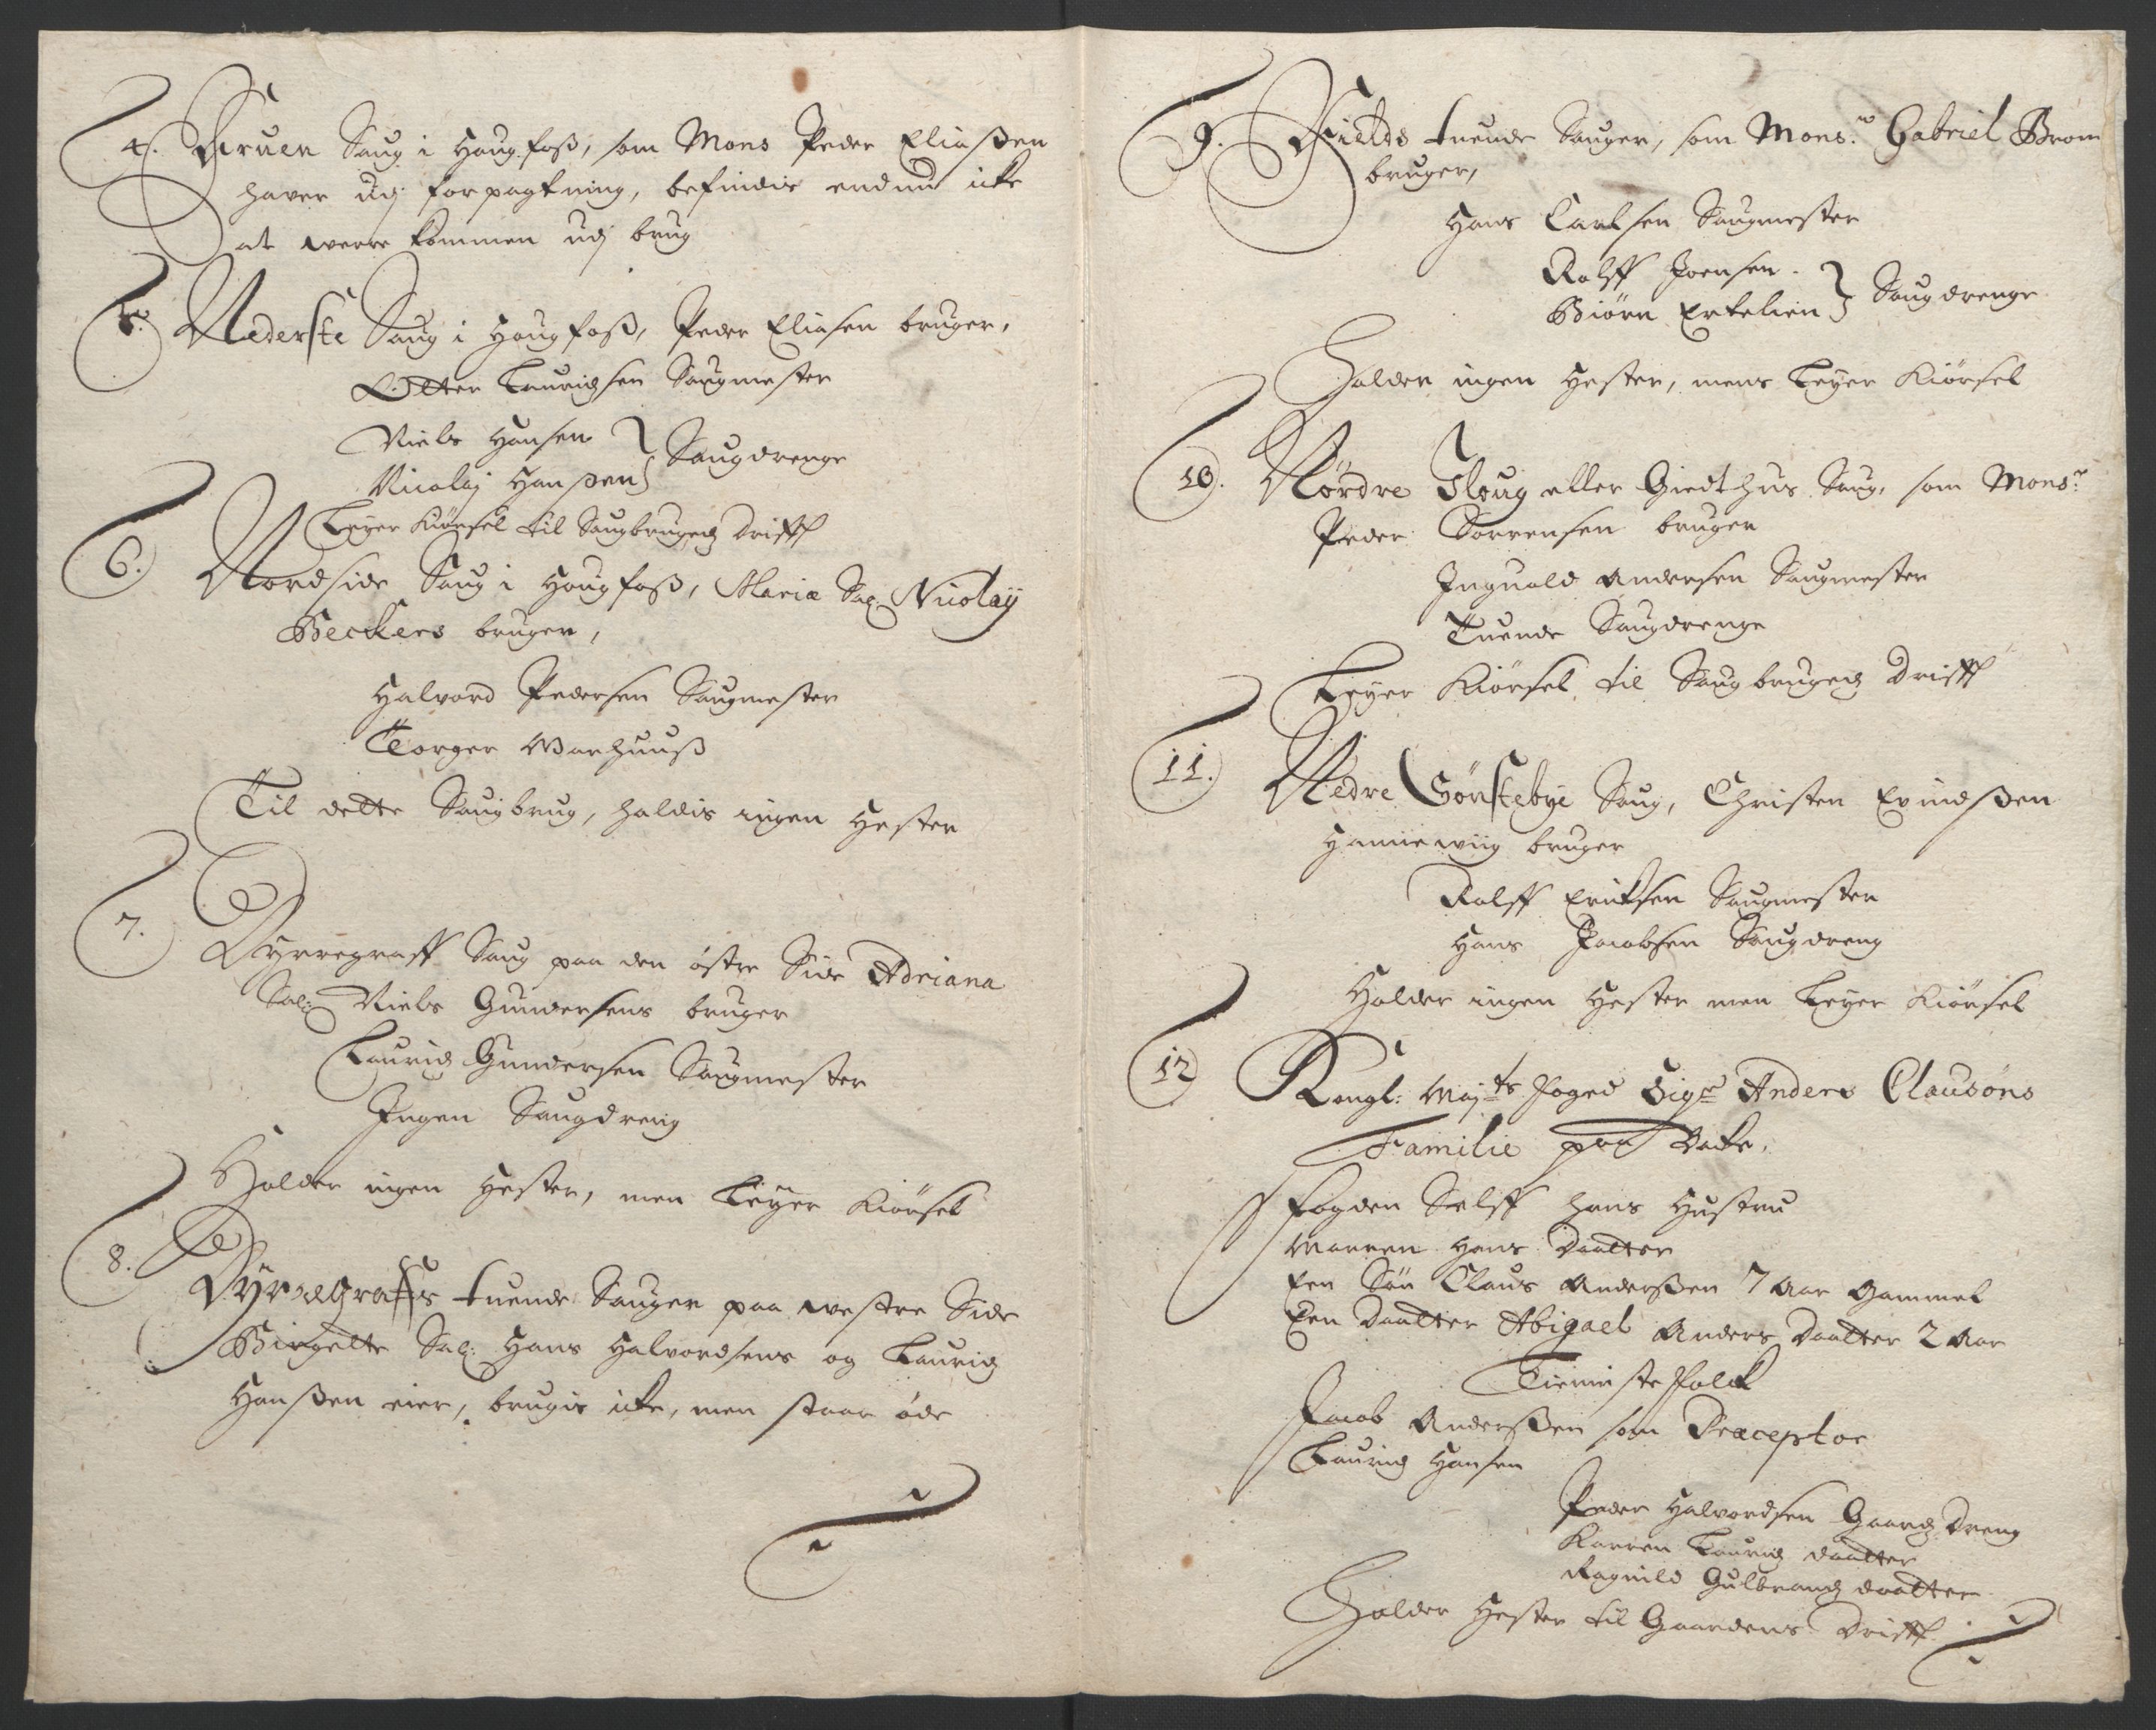 4. Kruen Saug i Hougfoß, som Mons Peder Eliaßen
hafver udj forpagtning, befindis endnu icke
at werre kommen udj brug
5. Nederste Saug i Hougfoß, Peder Eliasen bruger,
Otter Lauridsen Saugmester
Niels Hansen
Nicolaj Hanßen } Saugdrenge
Leyer Kiørsel til Saugbrugedz Drifft
6. Nordside Saug i Hougfoß, Maria Sal: Nicolaÿ
Beckers bruger,
Halvord Pedersen Saugmester
Torger Warhuuß
Til dette Saugbrug, holdis ingen Hester
7. Dyrregraff Saug paa den østre Side Adriana
Sal: Niels Gundersens bruger
Lauridz Gundersen Saugmester
Ingen Saugdreng
Holder ingen Hester, men Leÿer Kiørsel
8. Dÿrregraffs tuende Sauger paa westre Side
Birgitte Sal: Hans Halvordsens og Lauridz
Hanßen eier, brugis icke, men staar øde
9. Fields tuende Sauger, som Mons:r Gabriel Brom
bruger,
Hans Carlsen Saugmester
Rolff Joensen
Biørn Ertelien } Saugdrenge
Holder ingen Hester, mens Leyer Kiørsel
10. Nordre Floug eller Giedthus Saug, som Mons:r
Peder Sørrensen bruger
Inguald Andersen Saugmester
Tuende Saugdrenge
Leyer Kiørsel til Saugbrugedz Drifft
11. Nedre Sønstebye Saug, Christen Evindßen
bruger
Rolff Erichsen Saugmester
Hans Jacobsen Saugdreng
Holder ingen Hester men Leyer Kiørsel
12 Kongl: Majts Foged Sigr Anders Clausøns
Familie paa
Fogden Selff hans Hustru
Marren Hans Daatter
Een Søn Claus Anderßen 7 Aar Gammel
Een Daatter Abigael Anders Daatter 2 Aar
Tienniste Folck
Jacob Anderßen som Præceptor
Lauridz Hansen
Peder Halvordsen Gaardz Dreng
Karren Lauridz daatter
Ragnild Gulbrandz daatter
Holder Hester til Gaardens Drifft